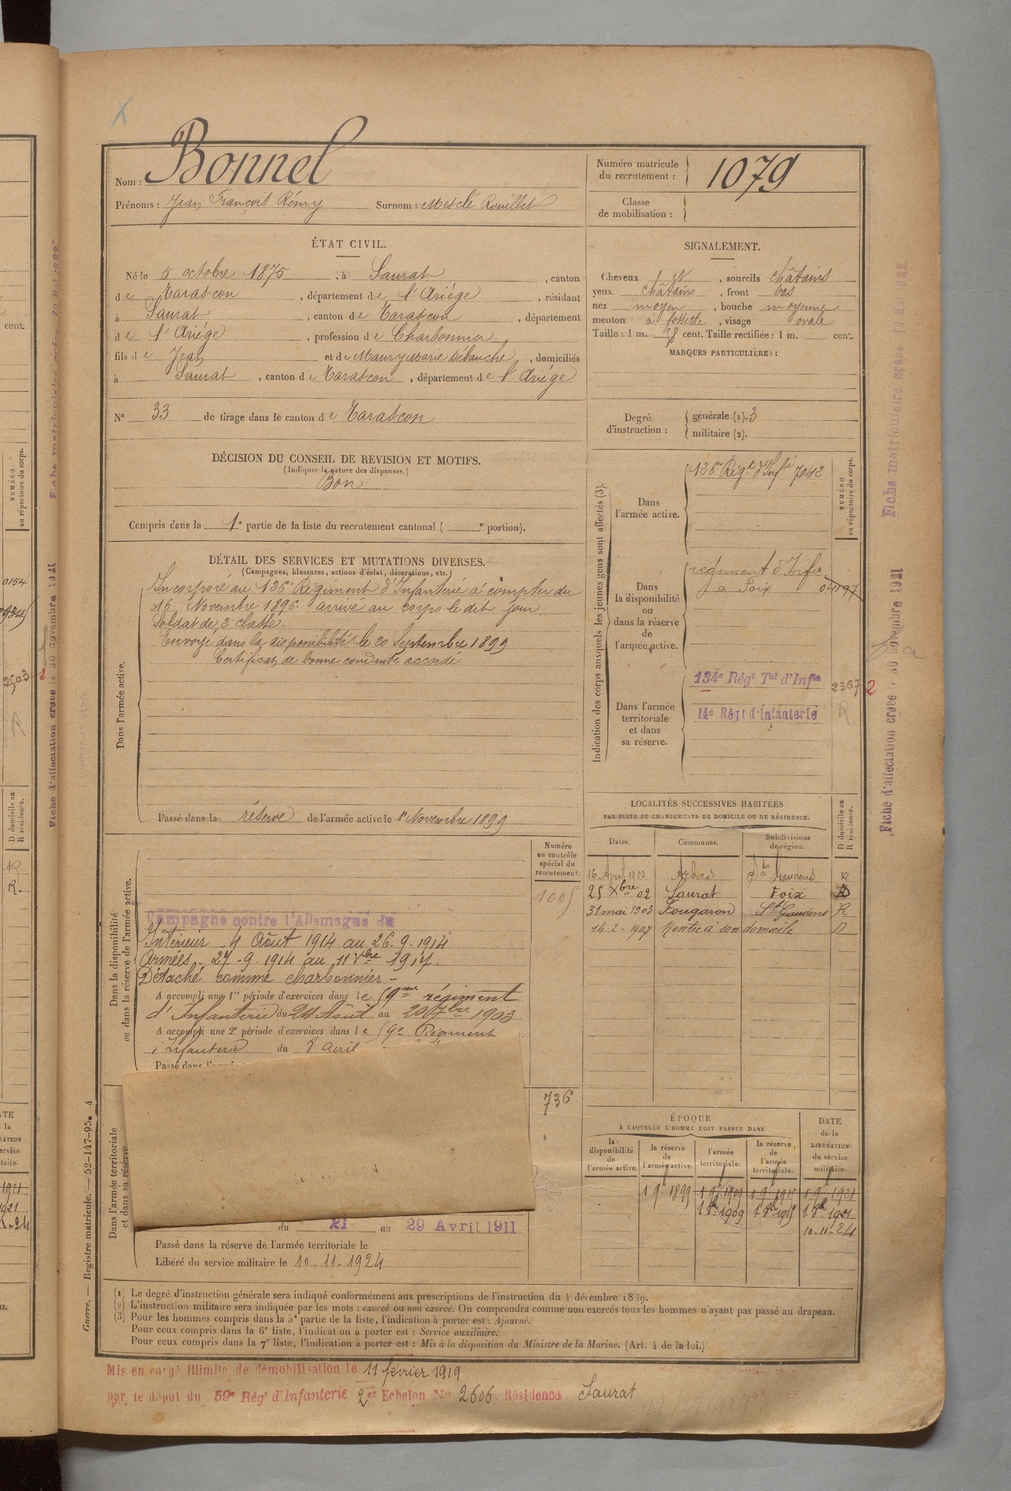 Nom : Bonnel
Prénoms : Jean François Rémy Surnom : Mesclé Rouillet
Numéro matricule
du recrutement : 1079
Classe
de mobilisation :
ÉTAT CIVIL.
Né le 5 octobre 1875, à Saurat, canton
de Tarascon, département de l'Ariége, résidant
à Saurat, canton de Tarascon, département
de l'Ariége, profession de Charbonnier
fils de Jean et de Maury Marie, domiciliés
à Saurat, canton de Tarascon, département de l'Ariége
N° 33 de tirage dans le canton de Tarascon
SIGNALEMENT.
Cheveux, sourcils châtains
yeux châtains, front bas
nez moyen, bouche moyenne
menton à fossette, visage ovale
Taille : 1 m. cent. Taille rectifiée : 1 m. cent.
MARQUES PARTICULIÈRES :
Degré
d'instruction :
générale (1). 3
militaire (2).
DÉCISION DU CONSEIL DE REVISION ET MOTIFS.
(Indiquer la nature des dispenses.)
Bon
Compris dans la 1e partie de la liste du recrutement cantonal ( e portion).
DÉTAIL DES SERVICES ET MUTATIONS DIVERSES.
(Campagnes, blessures, actions d'éclat, décorations, etc.)
Dans l'armée active.
Incorporé au 126e Régiment d'Infanterie à compter du
16 Novembre 1896 arrivé au corps le dit jour
Soldat de 2e classe.
Envoyé dans la disponibilité le 20 Septembre 1899
Certificat de bonne conduite accordé
Passé dans la réserve de l'armée active le 1er Novembre 1899
Indication des corps auxquels les jeunes gens sont affectés (3).
NUMÉRO
au répertoire du corps.
Dans
l'armée active.
126e Régt d'Infie 7042
Dans
la disponibilité
ou
dans la réserve
de
l'armée active.
régiment d'Infie
à Foix
Dans l'armée
territoriale
et dans
sa réserve.
134e Régt Tal d'Infie 2367
14e Régt d'Infanterie R
LOCALITÉS SUCCESSIVES HABITÉES
PAR SUITE DE CHANGEMENTS DE DOMICILE OU DE RÉSIDENCE.
Dates. Communes. Subdivisions
de région. D domicile ou
R résidence.
16 April 1902 Arbas St Gaudens R
25 Xbre 02 Saurat Foix D
31 mai 1903 Fougaron St Gaudens R
14-2-1907 Rentré à son domicile D
Dans la disponibilité
ou dans la réserve de l'armée active.
Numéro
au contrôle
spécial du
recrutement.
1005
Campagne contre l'Allemagne du
Intérieur 4 Août 1914 au 26.9.1914
Armées 27.9.1914 au 11 Xbre 1917.
Détaché comme charbonnier
A accompli une 1re période d'exercices dans le 59me régiment
d'Infanterie du 24 Août au 20 7bre 1903
A accompli une 2e période d'exercices dans le 59e Régiment
d'Infanterie du 8 avril
Passé dans l'armé
736
Dans l'armée territoriale
et dans sa réserve
du 21 au 29 Avril 1911
Passé dans la réserve de l'armée territoriale le
Libéré du service militaire le 10-11-1924
ÉPOQUE
À LAQUELLE L'HOMME DOIT PASSER DANS
la
disponibilité
de
l'armée active. la réserve
de
l'armée active. l'armée
territoriale. la réserve
de
l'armée
territoriale. DATE
de la
LIBÉRATION
du service
militaire.
1 9e 1899 1 9e 1909 1 9e 1915 1 9e 1921
10-11-24
(1) Le degré d'instruction générale sera indiqué conformément aux prescriptions de l'instruction du 4 décembre 1889.
(2) L'instruction militaire sera indiquée par les mots : exercé ou non exercé. On comprendra comme non exercés tous les hommes n'ayant pas passé au drapeau.
(3) Pour les hommes compris dans la 5e partie de la liste, l'indication à porter est : Ajourné.
Pour ceux compris dans la 6e liste, l'indication à porter est : Service auxiliaire.
Pour ceux compris dans la 7e liste, l'indication à porter est : Mis à la disposition du Ministre de la Marine. (Art. 4 de la loi.)
Mis en congé illimité de démobilisation le 11 février 1919
par le dépot du 59e Régt d'Infanterie 2er Echelon No 2606 Résidence Saurat
Guerre. — Registre matricule. — 52-147-95. 4
Fiche d'affectation créée 30 novembre 1921
Fiche matriculaire créée